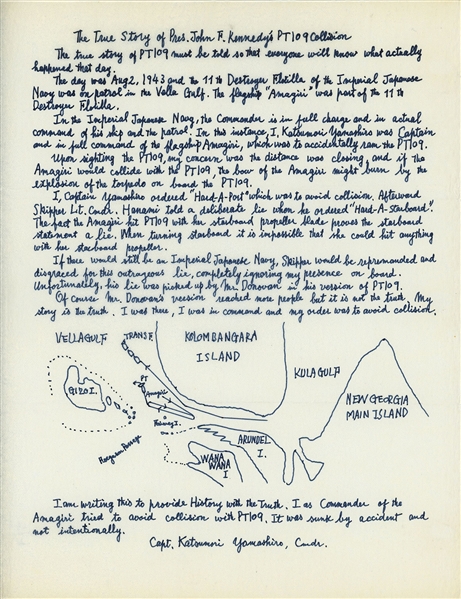 The True Story of Pres. John F. Kennedy's PT109 Collision
The true story of PT109 must be told so that everyone will know what actually
happened that day.
The day was Aug 2, 1943 and the 11th Destroyer Flotilla of the Imperial Japanese
Navy was on patrol in the Vella Gulf. The flagship "Amagiri" was part of the 11th
Destroyer Flotilla.
In the Imperial Japanese Navy, the Commander is in full charge and in actual
command of his ship and the patrol. In this instance, I, Katsumori Yamashiro was Captain
and in full command of the flagship Amagiri, which was to accidentally ram the PT109.
Upon sighting the PT109, my concern was the distance was closing, and if the
Amagiri would collide with the PT109, the bow of the Amagiri might burn by the
explosion of the torpedo on board the PT109.
I, Captain Yamashiro ordered "Hard-A-Port" which was to avoid collision. Afterward
Skipper Lt. Cmdr. Hanami told a deliberate lie when he ordered "Hard-A-Starboard".
The fact the Amagiri hit PT109 with her starboard propeller blade proves the starboard
statement a lie. When turning starboard it is impossible that she could hit anything
with her starboard propeller.
If there would still be an Imperial Japanese Navy, Skipper would be reprimanded and
disgraced for this outrageous lie, completely ignoring my presence on board.
Unfortunately, his lie was picked up by Mr. Donovan in his version of PT109.
Of course Mr. Donovan's version reached more people but it is not the truth. My
story is the truth. I was there, I was in command and my order was to avoid collision.
VELLA GULF
TRANSF.
KOLOMBANGARA
ISLAND
KULA GULF
GIZO I.
PT
Amagiri
NEW GEORGIA
MAIN ISLAND
ARUNDEL
I.
Ferguson Passage
WANA
WANA
I
I am writing this to provide History with the Truth. I as Commander of the
Amagiri tried to avoid collision with PT109. It was sunk by accident and
not intentionally.
Capt. Katsumori Yamashiro, Cmdr.